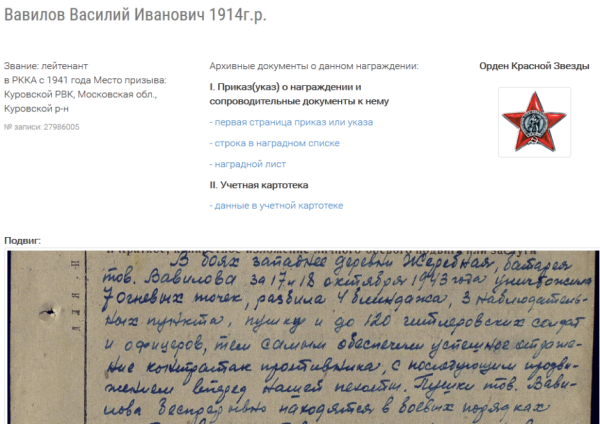 Вавилов Василий Иванович 1914г.р.
Звание: лейтенант
в РККА с 1941 года Место призыва:
Куровской РВК, Московская обл.,
Куровской р-н
№ записи: 27986005
Архивные документы о данном награждении:
I. Приказ(указ) о награждении и
сопроводительные документы к нему
- первая страница приказ или указа
- строка в наградном списке
- наградной лист
II. Учетная картотека
- данные в учетной картотеке
Орден Красной Звезды
Подвиг:
В боях западнее деревни Жеребная, батарея
тов. Вавилова за 17 и 18 октября 1943 года уничтожила
7 огневых точек, разбила 4 блиндажа, 3 наблюдатель-
ных пункта, пушку и до 120 гитлеровских солдат
и офицеров, тем самым обеспечили успешное отраже-
ние контратак противника, с последующим продви-
жением вперед нашей пехоты. Пушки тов. Вави-
лова беспрерывно находятся в боевых порядках